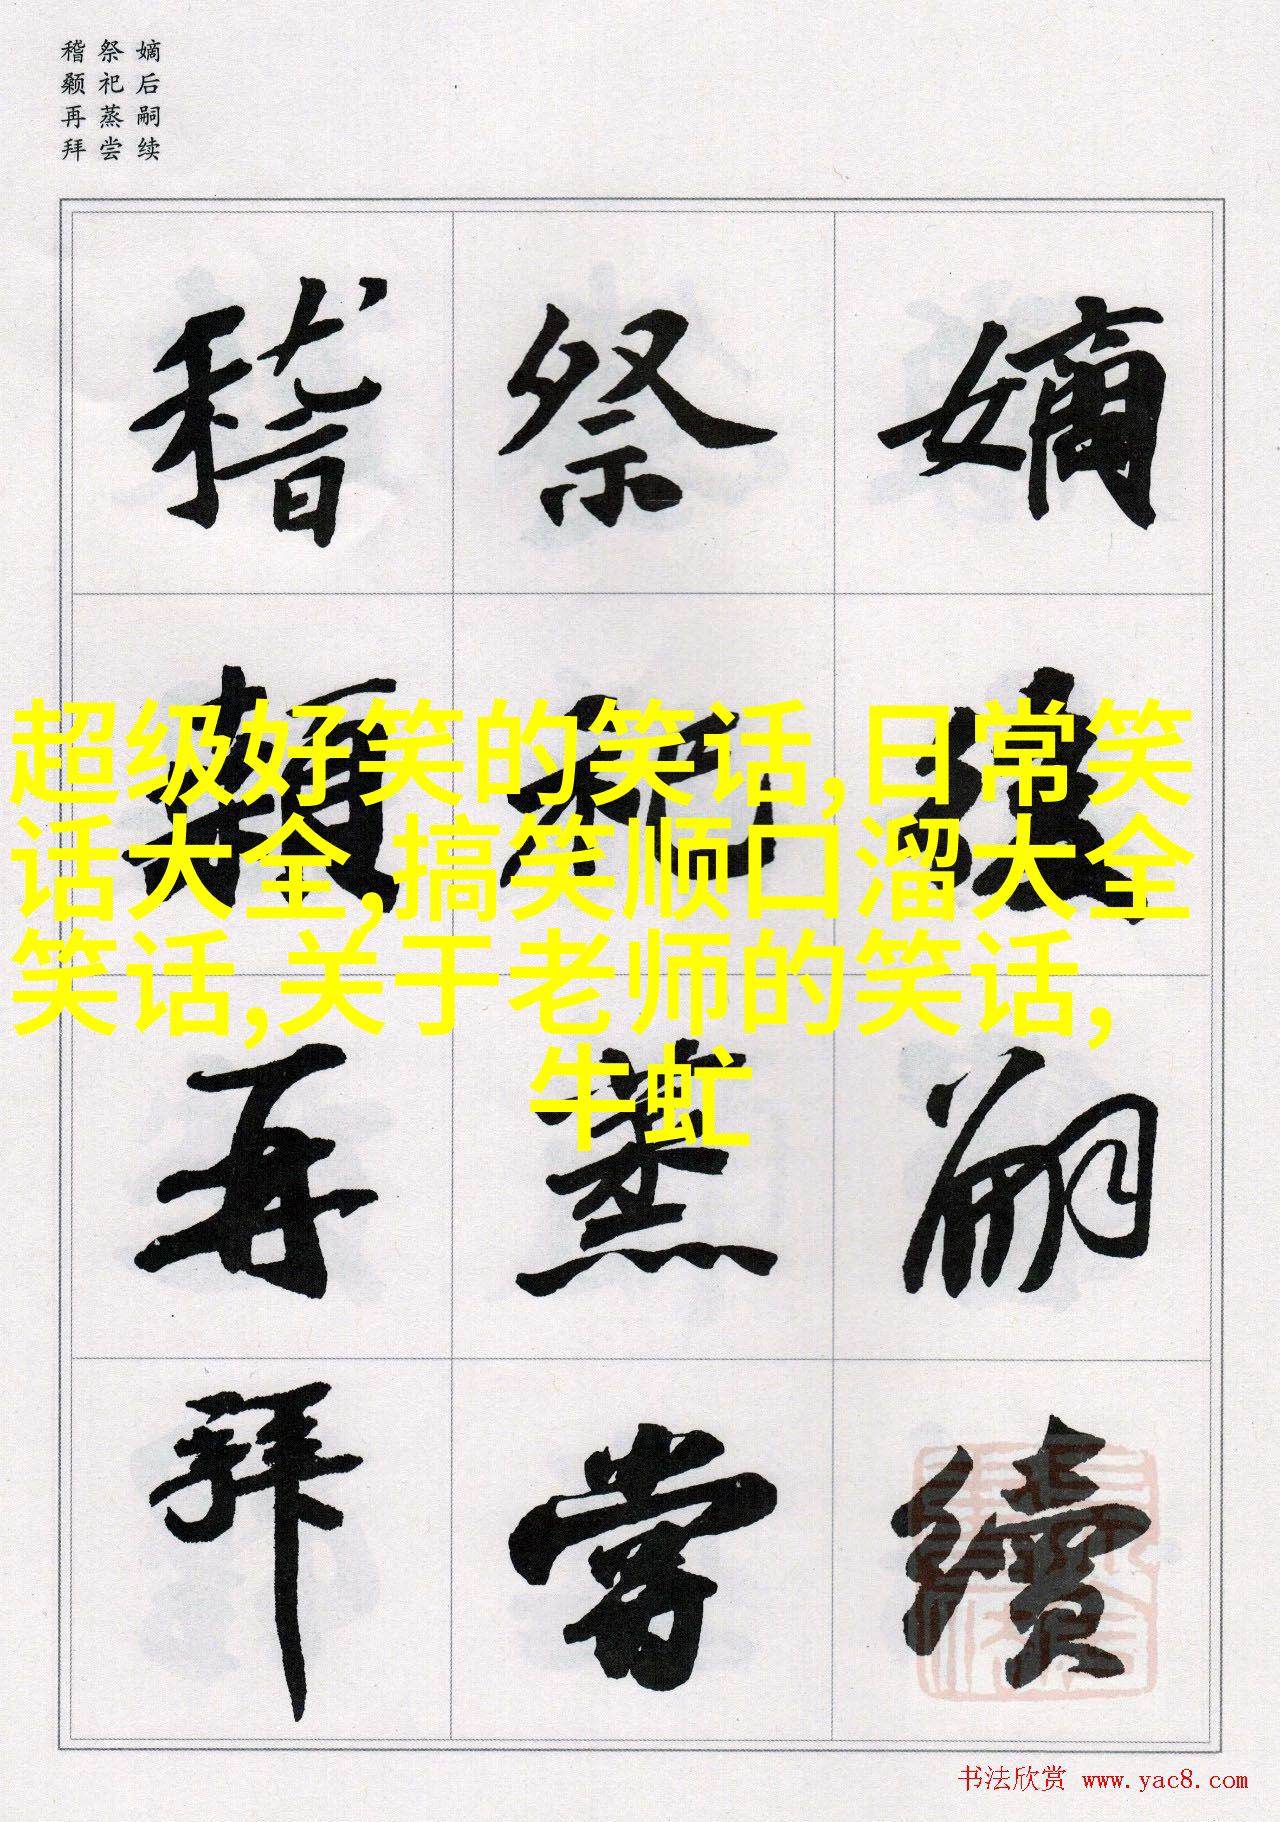 嫡后嗣续
祭祀蒸尝
稽颡再拜
嫡
后
嗣
續
祭
祀
蒸
嘗
稽
顙
再
拜
超级好笑的笑话,日常笑
话大全,搞笑顺口溜大全
笑话,关于老师的笑话,
牛虻
书法欣赏 www.yac8.com